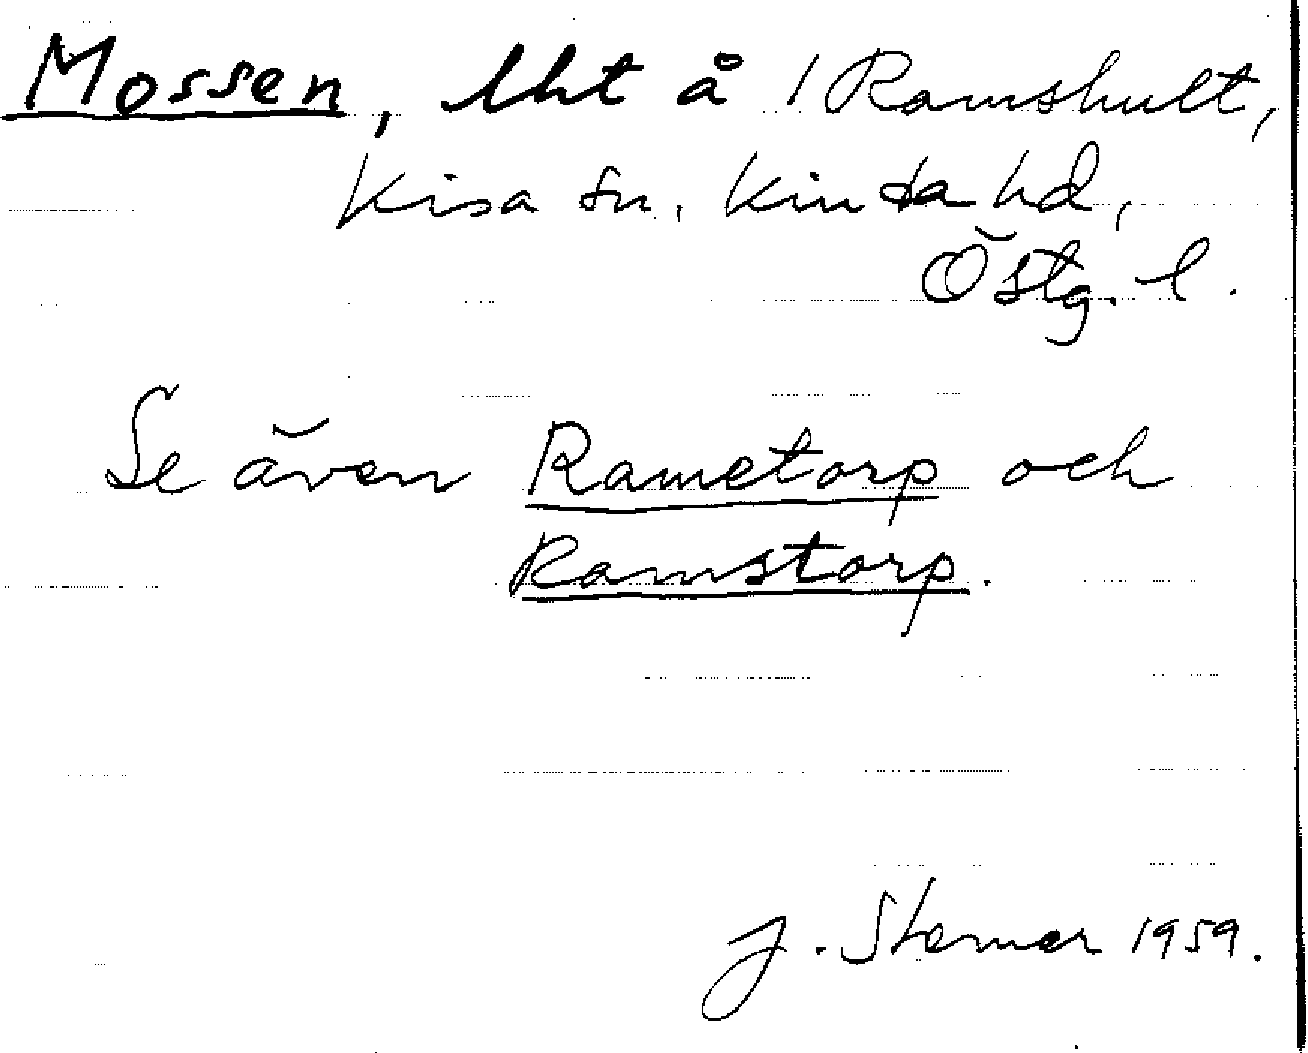 Mossen, lht å 1 Ramshult,
Kisa sn. Kinda hd,
Östg. l.
Se även Rametorp och
Ramstorp.
J. Sterner 1959.